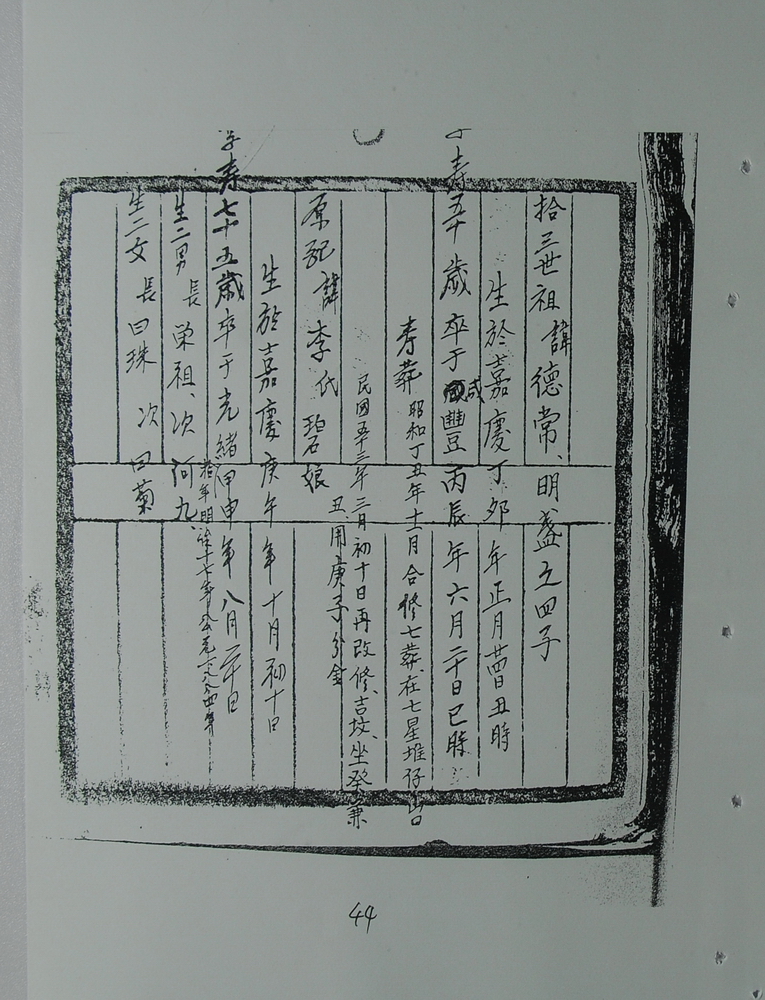 拾三世祖諱德常、明盏之四子
生於嘉慶丁夘年正月廿日丑時
寿五十歲卒于咸豐丙辰年六月二十日巳時
寿葬昭和丁丑年十二月合修七葬、在七星堆仔山
民國五十三年三月初十日再改修、吉坟、坐癸兼
丑、用庚子分金
原配諱李氏碧娘
生於嘉慶庚午年十月初十日
寿七十五歲卒于光緒甲申年八月二十日
老年明治十七年
生二男長荣祖、次阿九、
生二女長曰珠次曰菊
44